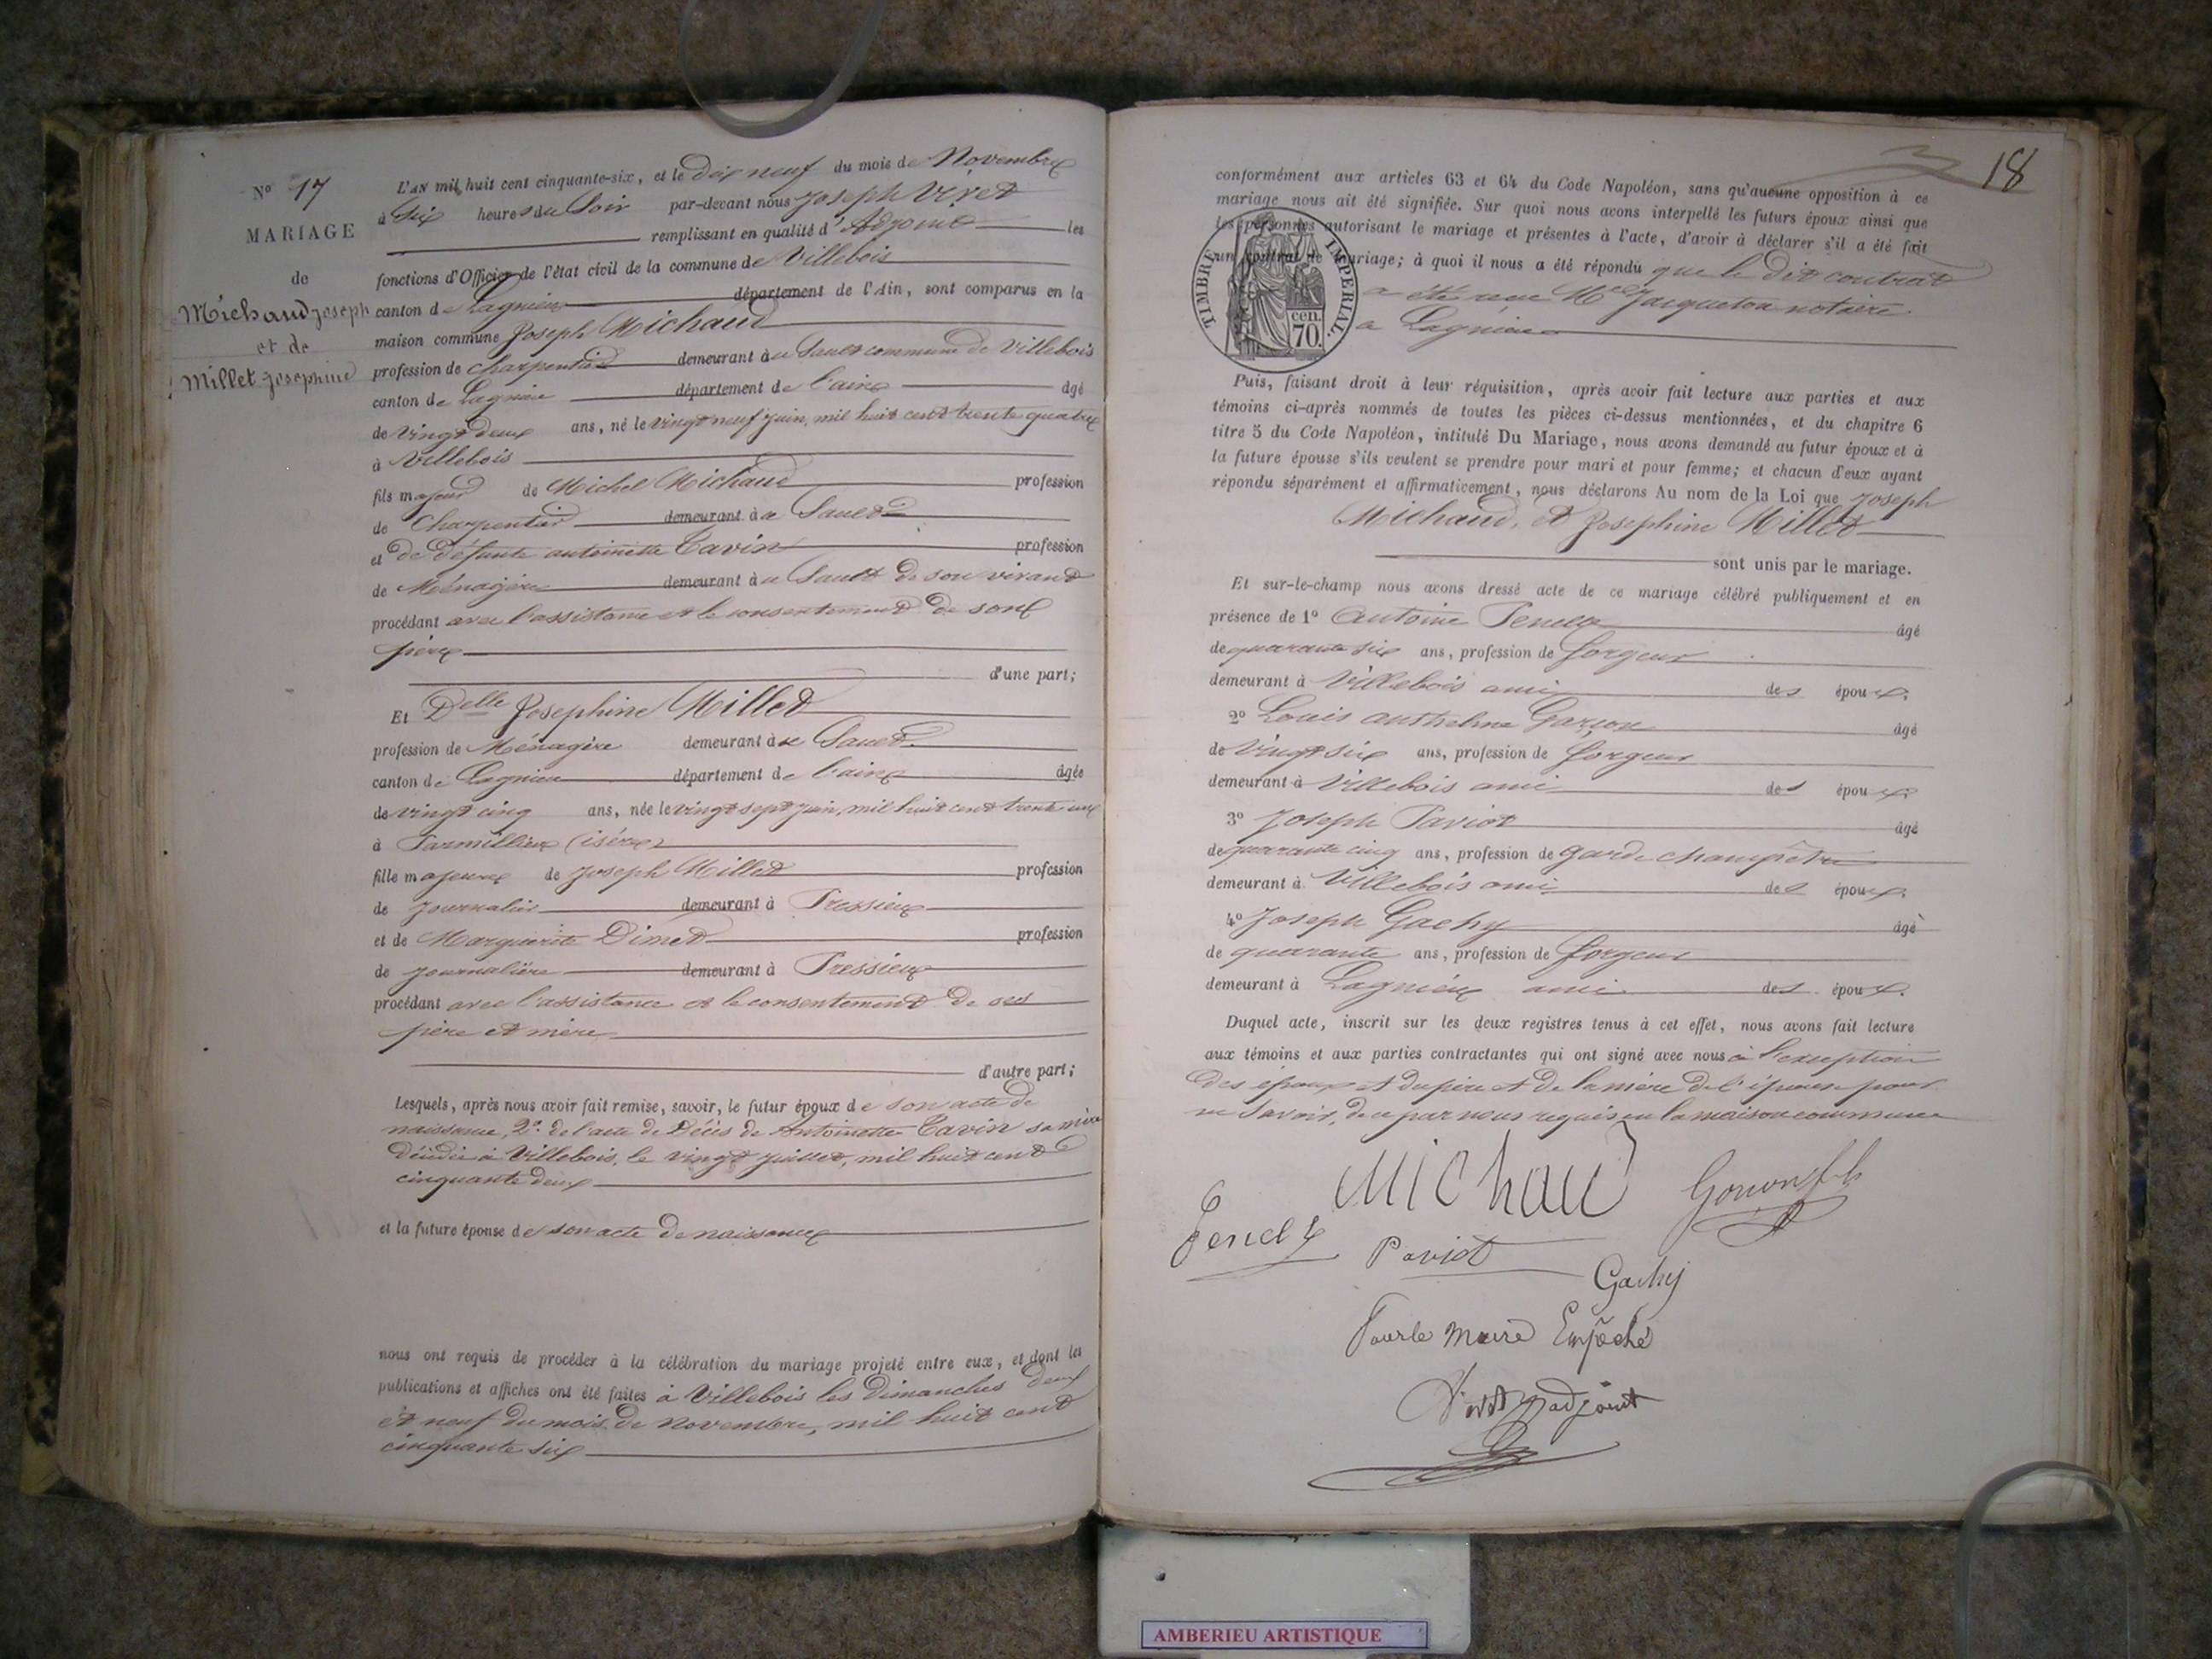 N° 17
MARIAGE
de
Michaud Joseph
et de
Millet Josephine
L'AN mil huit cent cinquante-six, et le dix neuf du mois de Novembre
à Six heures du Soir par-devant nous Joseph Viret
remplissant en qualité d'Adjoint les
fonctions d'Officier de l'état civil de la commune de Villebois
canton de Lagnieu département de l'Ain, sont comparus en la
maison commune Joseph Michaud
profession de charpentier demeurant à u Sault commune de Villebois
canton de Lagnieu département de l'ain âgé
de vingt deux ans, né le vingt neuf juin, mil huit cent trente quatre
à Villebois
fils majeur de Michel Michaud profession
de Charpentier demeurant à u Sault
et de défunte antoinette Tavin profession
de Ménagère demeurant à u Sault de son vivant
procédant avec l'assistance et le consentement de son
père
d'une part;
Et Delle Josephine Millet
profession de Ménagère demeurant à u Sault
canton de Lagnieu département de l'ain âgée
de vingt cinq ans, née le vingt sept juin, mil huit cent trente un
à Parmillieu (isère)
fille majeure de Joseph Millet profession
de journalier demeurant à Pressieu
et de Marguerite Dimet profession
de journalière demeurant à Pressieu
procédant avec l'assistance et le consentement de ses
père et mère
d'autre part;
Lesquels, après nous avoir fait remise, savoir, le futur époux de son acte de
naissance, 2° de l'acte de Décès de Antoinette Tavin sa mère
Décédée à Villebois, le vingt juillet, mil huit cent
cinquante deux
et la future épouse de son acte de naissance
nous ont requis de procéder à la célébration du mariage projeté entre eux, et dont les
publications et affiches ont été faites à Villebois les Dimanches deux
et neuf du mois de Novembre, mil huit cent
cinquante six
18
conformément aux articles 63 et 64 du Code Napoléon, sans qu'aucune opposition à ce
mariage nous ait été signifiée. Sur quoi nous avons interpellé les futurs époux ainsi que
les personnes autorisant le mariage et présentes à l'acte, d'avoir à déclarer s'il a été fait
un contrat de mariage; à quoi il nous a été répondu que le dit contrat
a été reçu Me Jacqueton notaire
a Lagnieu
TIMBRE IMPÉRIAL.
cen.
70.
Puis, faisant droit à leur réquisition, après avoir fait lecture aux parties et aux
témoins ci-après nommés de toutes les pièces ci-dessus mentionnées, et du chapitre 6
titre 5 du Code Napoléon, intitulé Du Mariage, nous avons demandé au futur époux et à
la future épouse s'ils veulent se prendre pour mari et pour femme; et chacun d'eux ayant
répondu séparément et affirmativement, nous déclarons Au nom de la Loi que Joseph
Michaud, et Josephine Millet
sont unis par le mariage.
Et sur-le-champ nous avons dressé acte de ce mariage célébré publiquement et en
présence de 1° Antoine âgé
de quarante six ans, profession de forgeur
demeurant à Villebois ami des époux;
2° Louis âgé
de vingt six ans, profession de forgeur
demeurant à Villebois ami des époux;
3° Joseph Paviot âgé
de quarante cinq ans, profession de garde champêtre
demeurant à Villebois ami des époux;
4° Joseph Gachy âgé
de quarante ans, profession de forgeur
demeurant à Lagnieu ami des époux.
Duquel acte, inscrit sur les deux registres tenus à cet effet, nous avons fait lecture
aux témoins et aux parties contractantes qui ont signé avec nous à l'exception
des époux et du père et de la mère de l'épouse pour
ne savoir, de ce par nous requis en la maison commune
Michaud
Paviot
Gachy
Pour le maire Empêché
Viret adjoint
AMBERIEU ARTISTIQUE